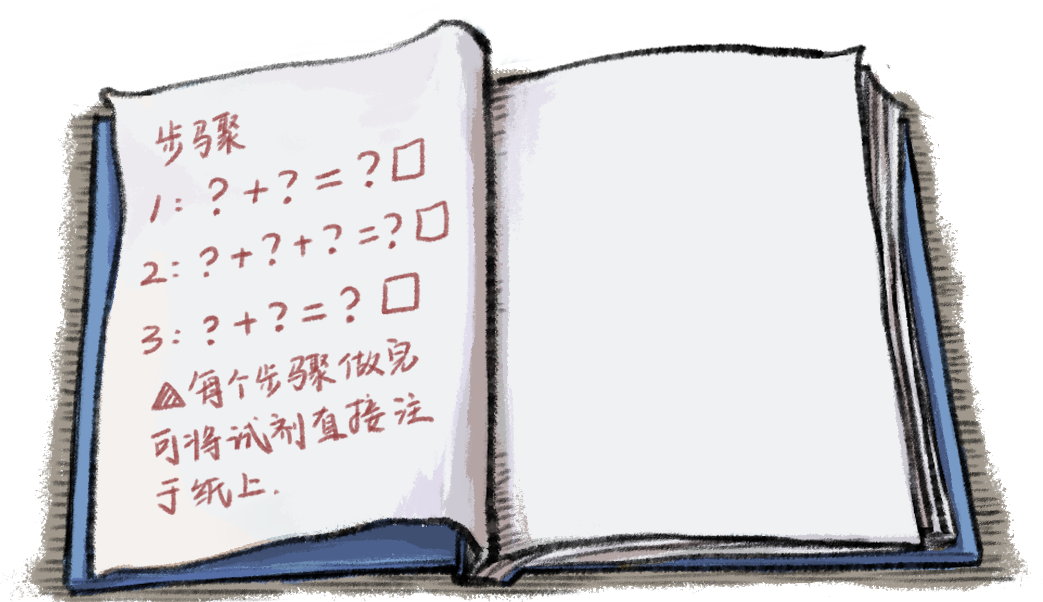 步骤
1：？+？=？□
2：？+？+？=？□
3：？+？=？□
▲每个步骤做完
可将试剂直接注
于纸上.